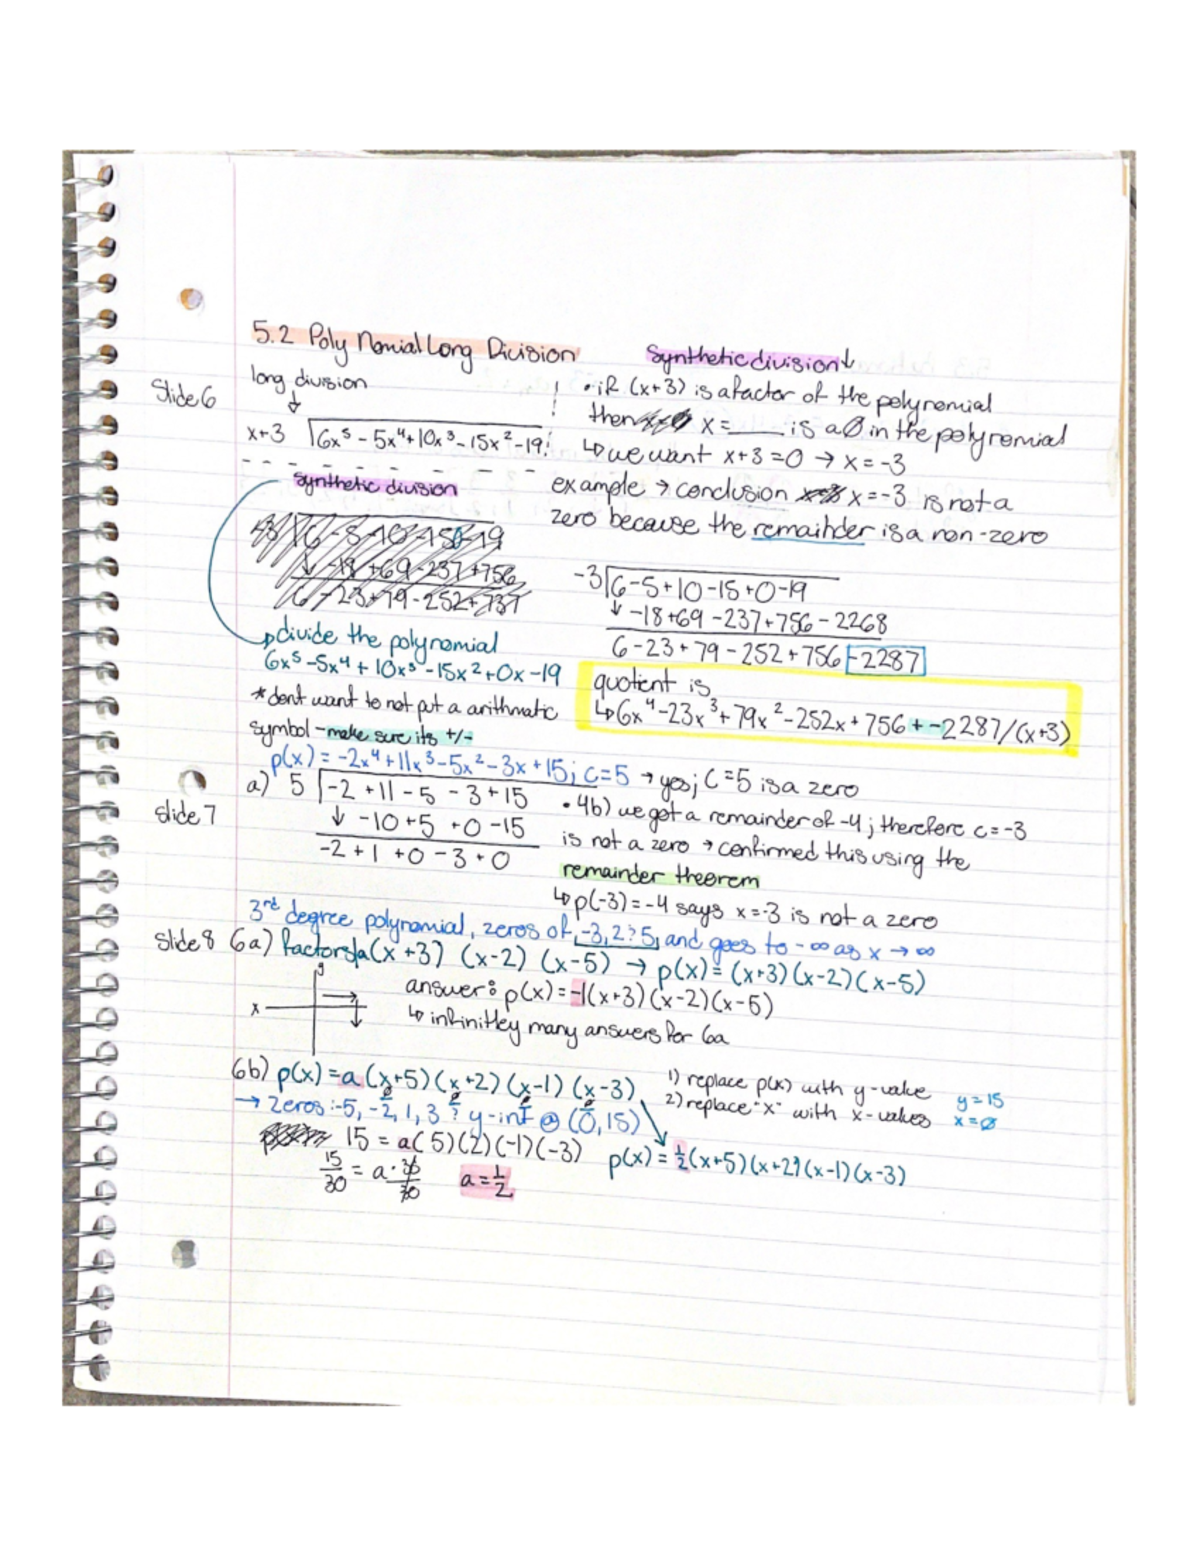 5.2 Polynomial Long Division
Slide 6
long division
↓
x+3 6x⁵ - 5x⁴+10x³-15x²-19
Synthetic division↓
• if (x+3) is a factor of the polynomial
then x=____ is a ∅ in the polynomial
↳ we want x+3=0 → x=-3
example → conclusion x=-3 is not a
zero because the remainder is a non-zero
Synthetic division
-3 6-5+10-15+0-19
↓ -18+69-237+756-2268
6-23+79-252+756 -2287
divide the polynomial
6x⁵-5x⁴+10x³-15x²+0x-19
*dont want to not put a arithmatic
symbol - make sure its +/-
quotient is
↳ 6x⁴-23x³+79x²-252x+756+-2287/(x+3)
p(x) = -2x⁴+11x³-5x²-3x+15; c=5 → yes; C=5 is a zero
Slide 7
a) 5 -2+11-5-3+15
↓ -10+5+0-15
-2+1+0-3+0
• 4b) we got a remainder of -4; therefore c=-3
is not a zero → confirmed this using the
remainder theorem
↳ p(-3)=-4 says x=-3 is not a zero
3rd degree polynomial, zeros of -3,2 & 5, and goes to -∞ as x→∞
Slide 8 6a) factors a(x+3) (x-2) (x-5) → p(x)=(x+3)(x-2)(x-5)
y
x
answer: p(x)=-1(x+3)(x-2)(x-5)
↳ infinitley many answers for 6a
6b) p(x)=a(x+5)(x+2)(x-1)(x-3)
→ Zeros: -5, -2, 1, 3 & y-int @ (0,15)
1) replace p(x) with y-value y=15
2) replace "x" with x-values x=∅
15 = a(5)(2)(-1)(-3)
p(x)=½(x+5)(x+2)(x-1)(x-3)
15/30 = a·30/30 a=½